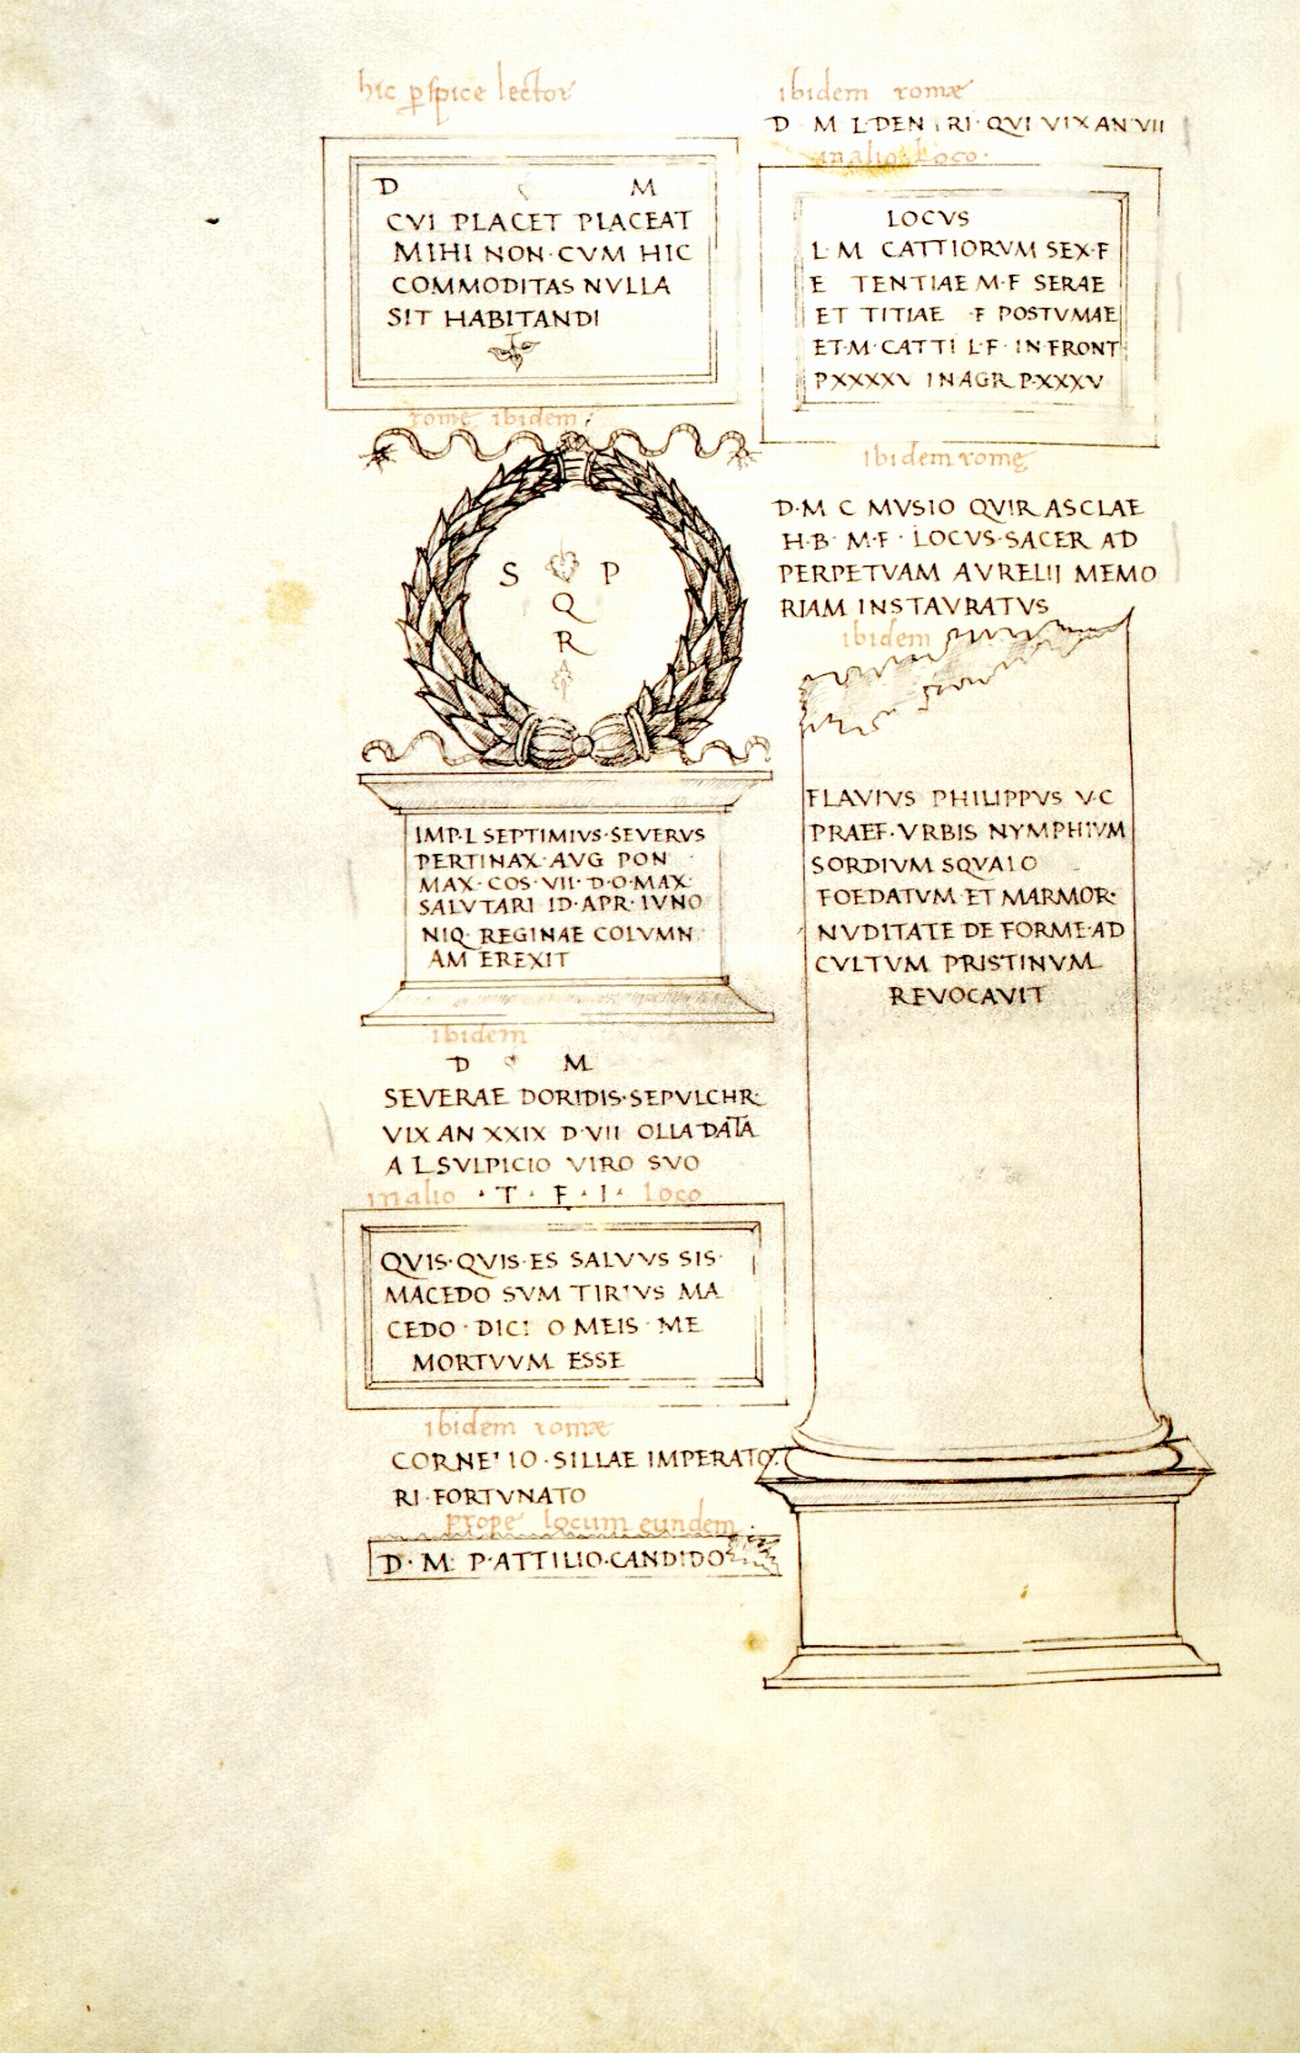 hic pspice lector
D M
CVI PLACET PLACEAT
MIHI NON·CVM HIC
COMMODITAS NVLLA
SIT HABITANDI
rome ibidem
S P
Q
R
IMP·L SEPTIMIVS·SEVERVS
PERTINAX·AVG PON
MAX·COS·VII·D·O·MAX·
SALVTARI ID·APR·IVNO
NIQ·REGINAE COLVMN
AM EREXIT
ibidem
D M
SEVERAE DORIDIS·SEPVLCHR·
VIX AN XXIX D·VII OLLA DATA
A L SVLPICIO VIRO SVO
in alio ·T·F·I· loco
QVIS·QVIS·ES SALVVS SIS·
MACEDO SVM TIRIVS MA
CEDO·DICI O MEIS·ME
MORTVVM ESSE
ibidem romæ
CORNE IO·SILLAE IMPERATO
RI·FORTVNATO
prope locum eundem
D·M· P·ATTILIO·CANDIDO
ibidem romæ
D M L·DEN RI·QVI VIX AN VII
in alio loco·
LOCVS
L·M CATTIORVM SEX·F
E TENTIAE M·F SERAE
ET TITIAE F POSTVMAE
ET·M·CATTI L·F·IN·FRONT
P XXXXV IN AGR P·XXXV
ibidem romę
D·M C MVSIO QVIR ASCLAE
H·B·M·F·LOCVS·SACER AD
PERPETVAM AVRELII MEMO
RIAM INSTAVRATVS
ibidem
FLAVIVS PHILIPPVS V·C
PRAEF·VRBIS NYMPHIVM
SORDIVM SQVALO
FOEDATVM·ET MARMOR·
NVDITATE DE FORME·AD
CVLTVM PRISTINVM
REVOCAVIT